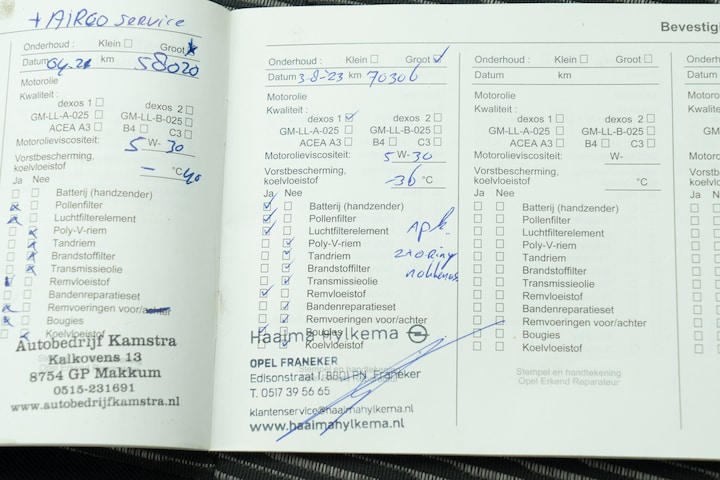 + AIRCO service
Onderhoud : Klein Groot
Datum km 58020
Motorolie
Kwaliteit :
dexos 1 dexos 2
GM-LL-A-025 GM-LL-B-025
ACEA A3 B4 C3
Motorolieviscositeit: 5 W- 30
Vorstbescherming,
koelvloeistof - °C 40
Ja Nee
Batterij (handzender)
Pollenfilter
Luchtfilterelement
Poly-V-riem
Tandriem
Brandstoffilter
Transmissieolie
Remvloeistof
Bandenreparatieset
Remvoeringen voor/achter
Bougies
Koelvloeistof
Autobedrijf Kamstra
Kalkovens 13
8754 GP Makkum
0515-231691
www.autobedrijfkamstra.nl
Onderhoud : Klein Groot
Datum 3-8-23 km 70306
Motorolie
Kwaliteit :
dexos 1 dexos 2
GM-LL-A-025 GM-LL-B-025
ACEA A3 B4 C3
Motorolieviscositeit: 5 W- 30
Vorstbescherming,
koelvloeistof -36 °C
Ja Nee
Batterij (handzender)
Pollenfilter
Luchtfilterelement
Poly-V-riem
Tandriem
Brandstoffilter
Transmissieolie
Remvloeistof
Bandenreparatieset
Remvoeringen voor/achter
Bougies
Koelvloeistof
apk
Haaima Hylkema
OPEL FRANEKER
Edisonstraat 1, 8801 PN Franeker
T. 0517 39 56 65
klantenservice@haaimahylkema.nl
www.haaimahylkema.nl
Onderhoud : Klein Groot
Datum km
Motorolie
Kwaliteit :
dexos 1 dexos 2
GM-LL-A-025 GM-LL-B-025
ACEA A3 B4 C3
Motorolieviscositeit: W-
Vorstbescherming,
koelvloeistof °C
Ja Nee
Batterij (handzender)
Pollenfilter
Luchtfilterelement
Poly-V-riem
Tandriem
Brandstoffilter
Transmissieolie
Remvloeistof
Bandenreparatieset
Remvoeringen voor/achter
Bougies
Koelvloeistof
Stempel en handtekening
Opel Erkend Reparateur
Bevestig
Onderh
Datum
Motorolie
Kwaliteit
GM-L
A
Motorolie
Vorstbes
koelvloei
Ja Nee